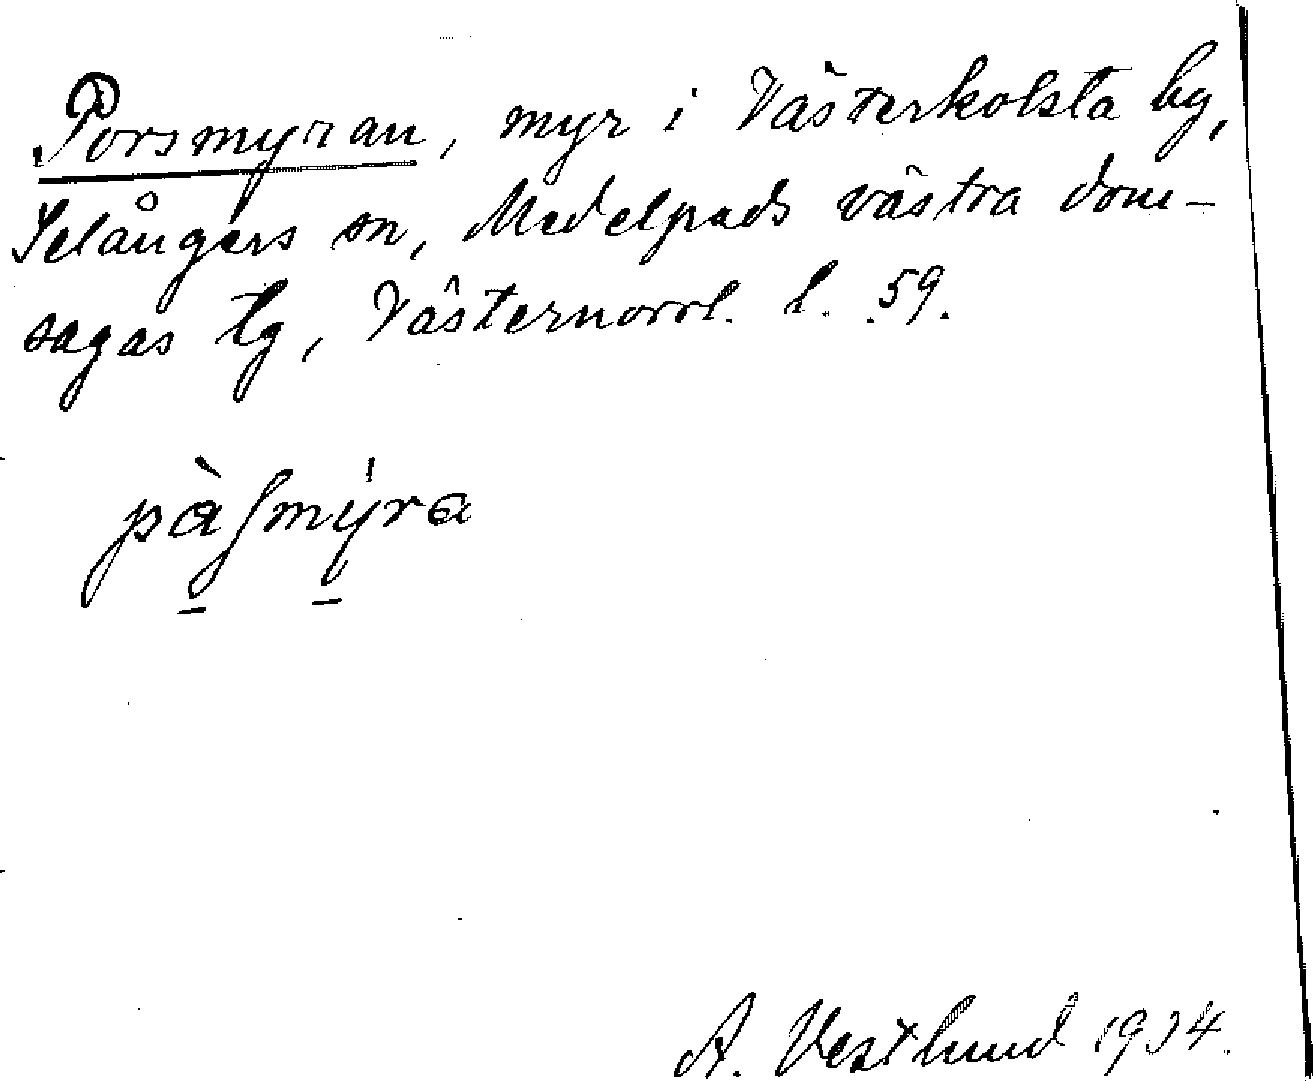 Porsmyran, myr i Västerkolsta by,
Selångers sn, Medelpads västra dom-
sagas tg, Västernorrl. l. 59.
pàʃmy̍ra
A. Vestlund 1934.